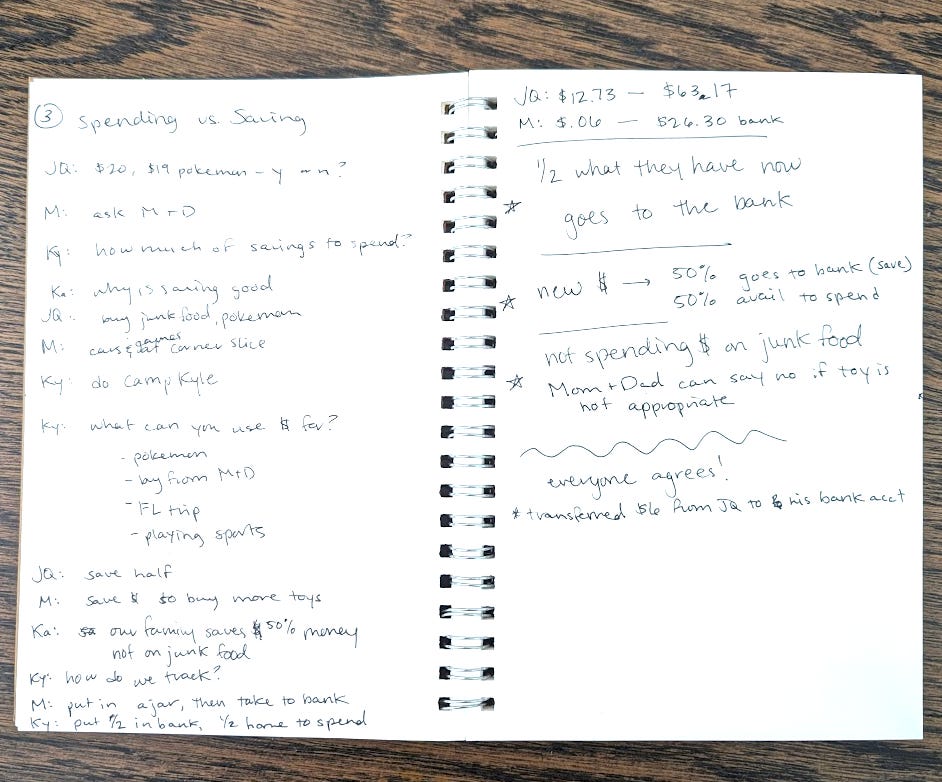 ③ Spending vs Saving
JQ: $20, $19 pokemon - y or n?
M: ask M+D
Ky: how much of savings to spend?
Ka: why is saving good
JQ: buy junk food, pokemon
M: slice
Ky: do
Ky: what can you use $ for?
- pokemon
- buy from M+D
- FL trip
- playing sports
JQ: save half
M: save $ to buy more toys
Ka: our family saves 50% money
not on junk food
Ky: how do we
M: put in a jar, then take to bank
K: put 1/2 in bank, 1/2 home to spend
JQ: $12.73 — $63.17
M: $.06 — $26.30 bank
1/2 what they have now
☆ goes to the bank
new $ → 50% goes to bank (save)
☆ 50% avail to spend
not spending $ on junk food
☆ Mom + Dad can say no if toy is
not appropriate
everyone agrees!
* transferred $6 from JQ to his bank acct